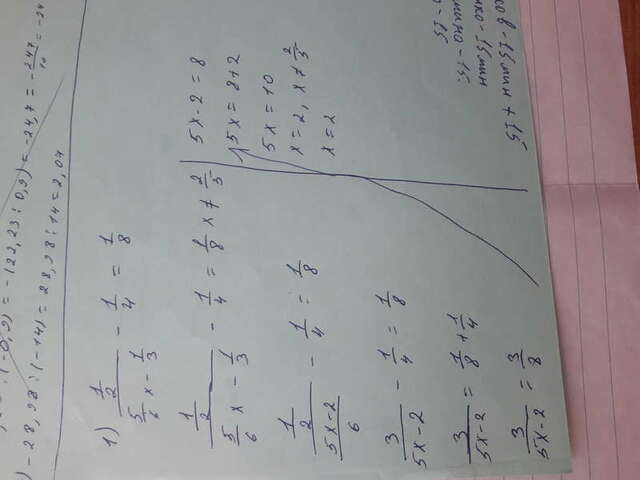 : (-0,9) = -(22,23 : 0,9) = -24,7 = -\frac{247}{10} = -24
) - 28,98 : (-14) = 28,98 : 14 = 2,07
1) \frac{\frac{1}{2}}{\frac{5}{6}x - \frac{1}{3}} - \frac{1}{4} = \frac{1}{8}
\frac{\frac{1}{2}}{\frac{5}{6}x - \frac{1}{3}} - \frac{1}{4} = \frac{1}{8} x ≠ \frac{2}{5}
\frac{\frac{1}{2}}{\frac{5x-2}{6}} - \frac{1}{4} = \frac{1}{8}
\frac{3}{5x-2} - \frac{1}{4} = \frac{1}{8}
\frac{3}{5x-2} = \frac{1}{8} + \frac{1}{4}
\frac{3}{5x-2} = \frac{3}{8}
5x-2 = 8
5x = 8+2
5x = 10
x = 2, x ≠ \frac{2}{5}
x = 2